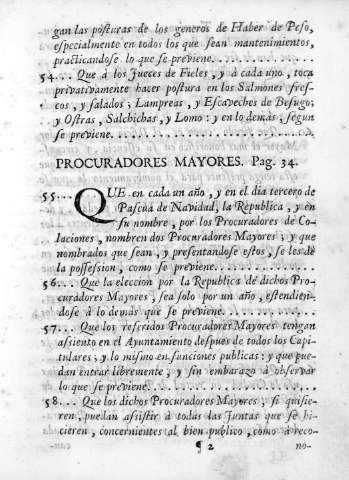 gan las posturas de los generos de Haber de Peso,
especialmente en todos los que sean mantenimientos,
practicandose lo que se previene....................
54... Que à los Jueces de Fieles, y à cada uno, toca
privativamente hacer postura en los Salmones fres-
cos, y salados; Lampreas, y Escaveches de Besugo;
y Ostras, Salchichas, y Lomo: y en lo demàs, segun
se previene....................
PROCURADORES MAYORES. Pag. 34.
55... QUE en cada un año, y en el dia tercero de
Pascua de Navidad, la Republica, y en
su nombre, por los Procuradores de Co-
laciones, nombren dos Procuradores Mayores; y que
nombrados que sean, y presentandose estos, se les dè
la possession, como se previene....................
56... Que la eleccion por la Republica de dichos Pro-
curadores Mayores, sea solo por un año, estendien-
dose à lo demàs que se previene....................
57... Que los referidos Procuradores Mayores tengan
assiento en el Ayuntamiento despues de todos los Capi-
tulares; y lo mismo en funciones publicas: y que pue-
dan entrar libremente, y sin embarazo à observar
lo que se previene....................
58... Que los dichos Procuradores Mayores, si quisie-
ren, puedan assistir à todas las Juntas que se hi-
cieren, concernientes al bien publico, como à reco-
¶ 2 no-